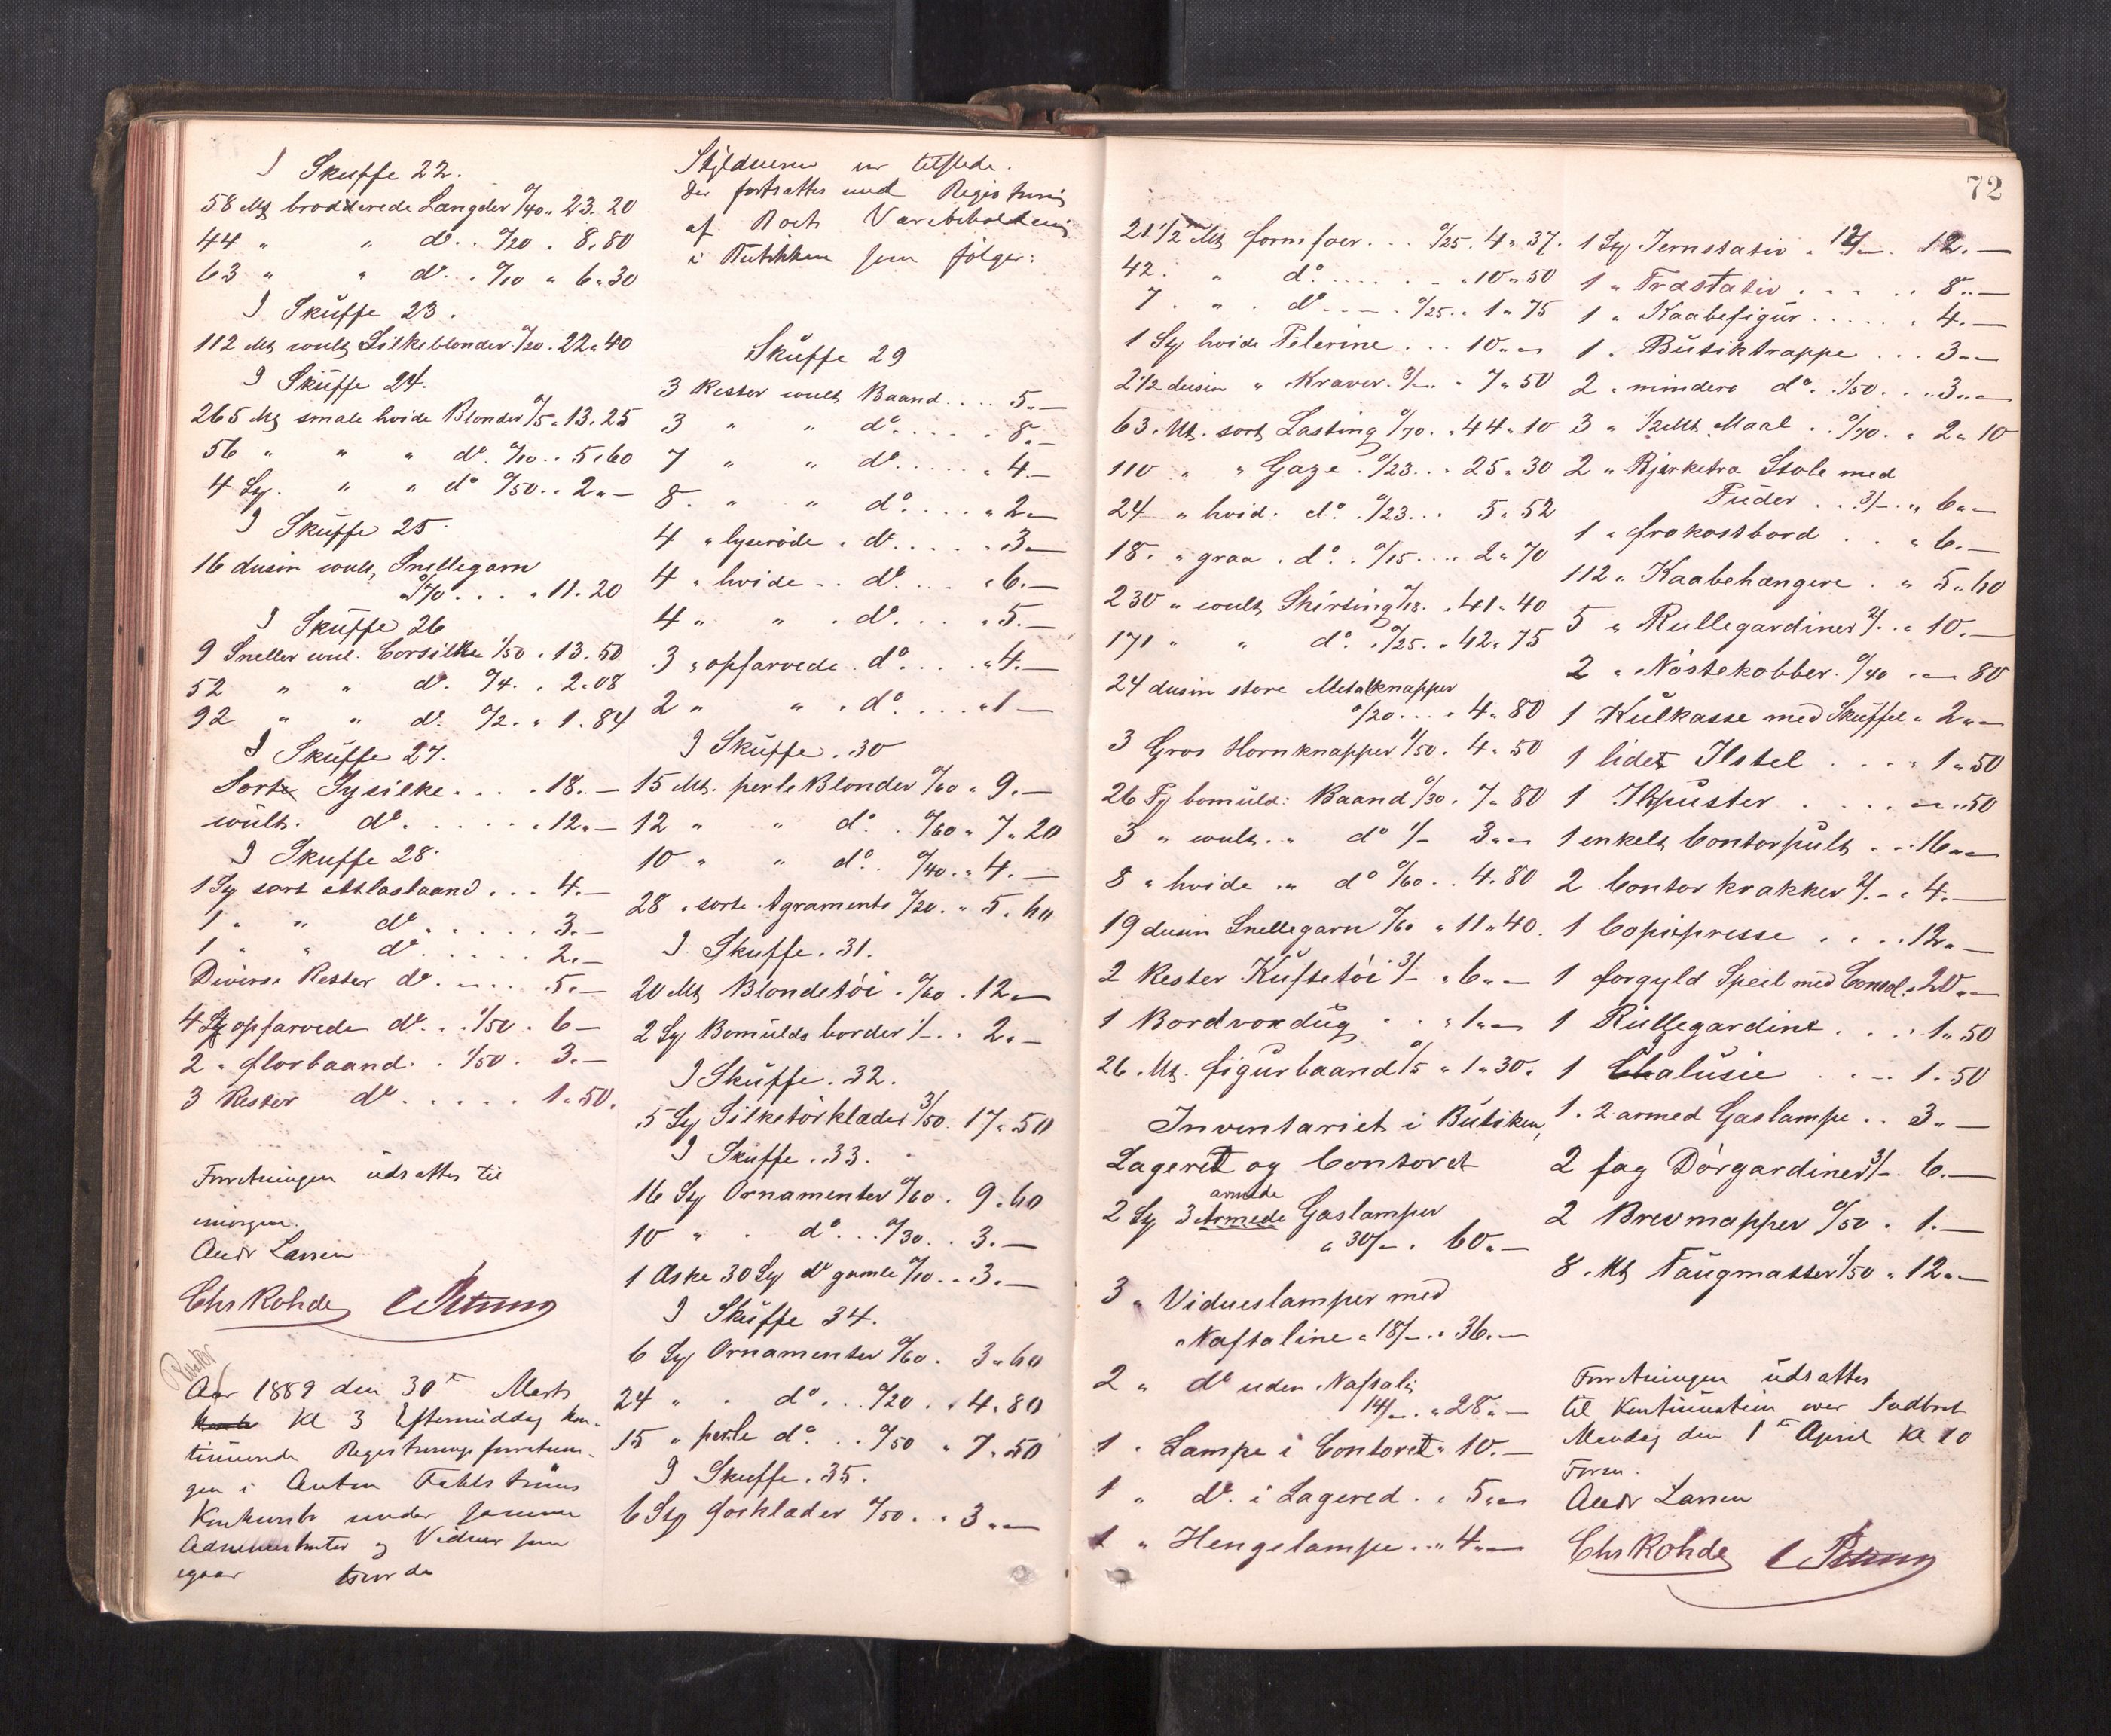 I Skuffe 22.
58 Mt broderede Længder 0/40 " 23. 20
44 " " do . . 0/20 . 8. 80
63 " " do . . 0/10 " 6 " 30
I Skuffe 23.
112 Mt coult Silkeblonder 0/20 . 22 " 40
I Skuffe 24.
265 Mt smale hvide Blonder 0/5 . 13. 25
56 " " " do. 0/10 . . 5 " 60
4 Sty. " " do 0/50 . . 2 " —
I Skuffe 25.
16 dusin coult, Snellegarn
0/70 . . . " 11. 20
I Skuffe 26
9 Sneller coul. Corsilke 1/50 . 13. 50
52 " " do. 0/4 . . 2 " 08
92 " " do. 0/2 . " 1. 84
I Skuffe 27.
Sorte Sysilke . . . . 18. —
coult. do. . . . . . . 12 " —
I Skuffe 28.
1 Sty sort Atlasbaand . . . 4. —
1 " " do. . . . . . 3. —
1 " " do. . . . . . 2. —
Diverse Rester do. . . . . 5. —
4 Sty opfarvede do. . . 1/50 . 6 —
2 " florbaand . . 1/50 . 3. —
3 Rester do. . . . . . 1 " 50.
Forretningen udsattes til
imorgen.
Andr Larsen
Chr Rohde
Aar 1889 den 30te Marts
Kl 3 Eftermiddag kon-
tinuerede Registreringsforretnin-
gen i Anton Fahlstrøms
Konkursbo under samme
Administrator og Vidner som
igaar
Skyldneren var tilstede.
Der fortsattes med Registrering
af Boets Varebeholdning
i Butikken som følger:
Skuffe 29
3 Rester coult Baand . . . . 5. —
3 " " do. . . . . 8. —
7 " " do. . . . . " 4. —
8. " " do. . . . " 2 " —
4 " lyseröde " do. . . . . " 3 —
4 " hvide . . do. . . . " 6. —
4 " " " do. . . . " 5. —
3 " opfarvede . do. . . . " 4. —
2 " " " do. . . . " 1 —
I Skuffe . 30
15 Mt. perle Blonder 0/60 " 9. —
12 " " do. . 0/60 " 7 " 20
10 " " do. . 0/40 . " 4. —
28 " sorte Agraments 0/20 . " 5. 60
I Skuffe . 31.
20 Mt Blondetöi . 0/60 . 12 " —
2 Sty Bomulds border 1/— . . 2. —
I Skuffe . 32.
5 Sty Silketörklæder 3/50 . 17 " 50
I Skuffe . 33.
16 Sty Ornamenter 0/60 . 9 " 60
10 " . do. . . 0/30 . . 3. —
1 Æske 30 Sty do gamle 0/10 . . 3. —
I Skuffe 34.
6 Sty Ornamenter 0/60 . 3 " 60
24 " . do. . . 0/20 . . 4 " 80
15 " perle do. . . 0/50 " 7 " 50
I Skuffe . 35.
6 Sty Forklæder 0/50 . . 3 " —
72
21 1/2 Mt formfoer . . . 0/25 . 4 " 37.
42. " do. . . . . . " 10 " 50
7. " . do. . . . . 0/25 . . 1 " 75
1 Sty hvide Pelerine . . . 10 " —
2 1/2 dusin " Kraver. 3/— . " 7 " 50
63. Mt. sort Lasting 0/70 . " 44 " 10
110 " " Gaze . 0/23 . . . 25 " 30
24 " hvid . do. . 0/23 . . . 5 " 52
18. " graa . do. . 0/15 . . . 2 " 70
230 " coult Shirting 0/18 . . 41 " 40
171 " " do. . 0/25 . . 42 " 75
24 dusin store Metalknapper
0/20 . . . " 4 " 80
3 Gros Hornknapper 1/50 . 4 " 50
26 Ty bomuld: Baand 0/30 . 7 " 80
3 " coult . " do 1/— 3 " —
8 " hvide . " do 0/60 . . 4. 80
19 dusin Snellegarn 0/60 " 11 " 40.
2 Rester Kuftetöi 3/— " 6 " —
1 Bordvoxdug . . " 1 " —
26. Mt. figurbaand 0/5 " 1 " 30.
Inventariet i Butiken,
Lageret og Contoret
armede
2 Sty 3 Armede Gaslamper
" 30/— . 60 " —
3 " Vidueslamper med
Naftaline " 18/— . " 36. —
2 " do uden Naftalin
14/— . " 28 " —
1 " Lampe i Contoret " 10. —
1 " do. i Lagered . " 5 " —
1 " Hengelampe . . " 4 " —
1 Sty Jernstativ " 12/— . 12. —
1 " Træstativ . . . . . . 8 " —
1 " Kaabefigur . . . . . . 4. —
1 " Butiktrappe . . . 3 " —
2 " mindere do. . 1/50 . . " 3 " —
3 " 1/2 Mt Maal . . 0/70 . " 2 " 10
2 " Bjerketræ Stole med
Puder . . 3/— . " 6 " —
1 " frokostbord . . " 6. —
112 " Kaabehængere . " 5 " 60
5 " Rullegardiner 2/— . " 10. —
2 " Nöstekobber . 0/40 . — 80
1 Kulkasse med Skuffel " 2 " —
1 lidet Ilstel . . . . 1 " 50
1 Ilpuster . . . . . — " 50
1 enkelt Contorpult . . . 16 " —
2 Contor krakker 2/— . 4. —
1 Copipresse . . . . 12 " —
1 forgyld Speil med Consol . 20 " —
1 Rullegardine . . . . 1 " 50
1 Chalusie . . . . 1. 50
1. 2 armed Gaslampe . . 3 " —
2 fag Dörgardiner 3/— . 6. —
2 Brevmapper 0/50 . 1. —
8. Mt Taugmatter 1/50 " 12 " —
Forretningen udsattes
til Kontinuation over Indboet
Mandag den 1te April Kl 10
Form.
Andr Larsen
Chr Rohde